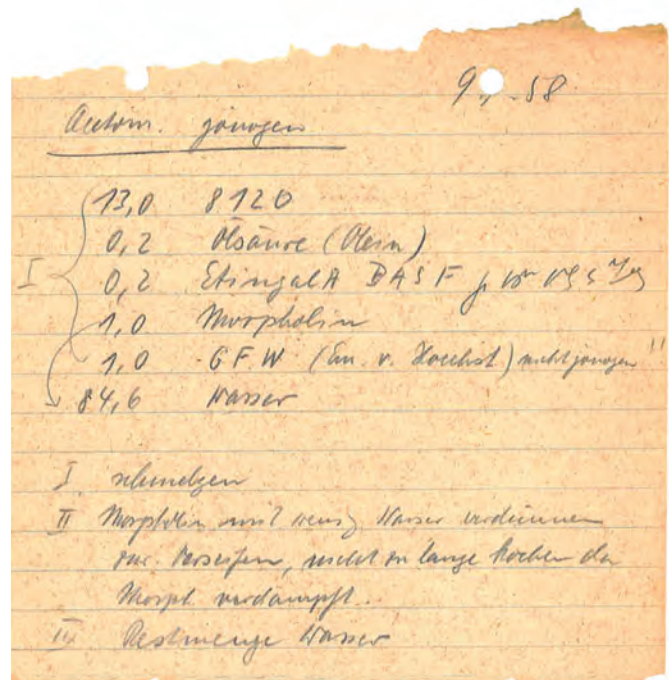 9. .58
Autom. jonogen
13,0 8120
0,2 Ölsäure (Olein)
I 0,2 Etingal A BASF
1,0 Morpholin
1,0 GFW (Em. v. Hoechst) nicht jonogen!!
84,6 Wasser
I schmelzen
II Morpholin mit wenig Wasser verdünnen
zur. Verseifen, nicht zu lange kochen da
Morph. verdampft.
III Restmenge Wasser